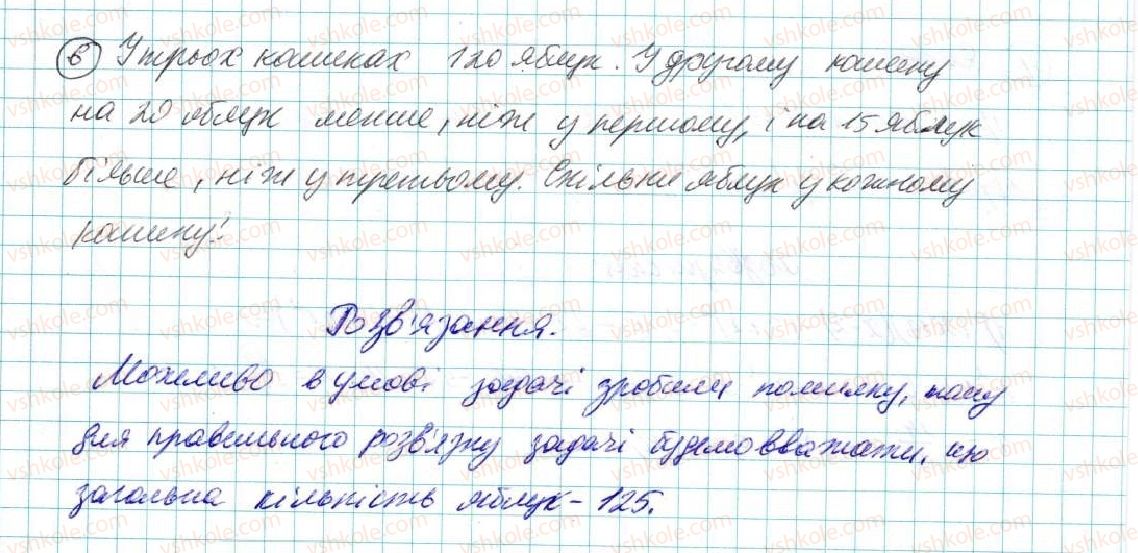 6 У трьох кошиках 120 яблук. У другому кошику
на 20 яблук менше, ніж у першому, і на 15 яблук
більше, ніж у третьому. Скільки яблук у кожному
кошику?
Розв'язання.
Можливо в умові задачі зробили помилку, тому
для правильного розв'язку задачі будемо вважати, що
загальна кількість яблук - 125.